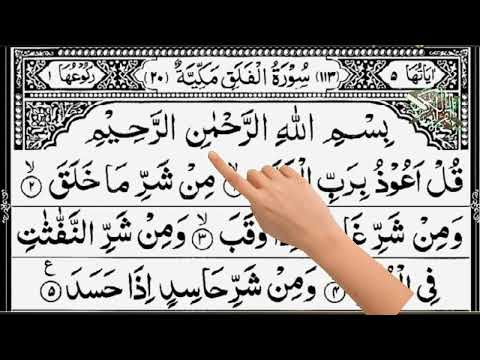 اٰيَاتُهَا ٥ (١١٣) سُوْرَةُ الْفَلَقِ مَكِّيَّةٌ (٢٠) رُكُوْعُهَا ١
بِسْمِ اللّٰهِ الرَّحْمٰنِ الرَّحِيْمِ
قُلْ اَعُوْذُ بِرَبِّ مِنْ شَرِّ مَا خَلَقَ ۙ﴿٢﴾
وَمِنْ شَرِّ وَقَبَ ۙ﴿٣﴾ وَمِنْ شَرِّ النَّفّٰثٰتِ
فِى ﴿٤﴾ وَمِنْ شَرِّ حَاسِدٍ اِذَا حَسَدَ ﴿٥﴾ ع